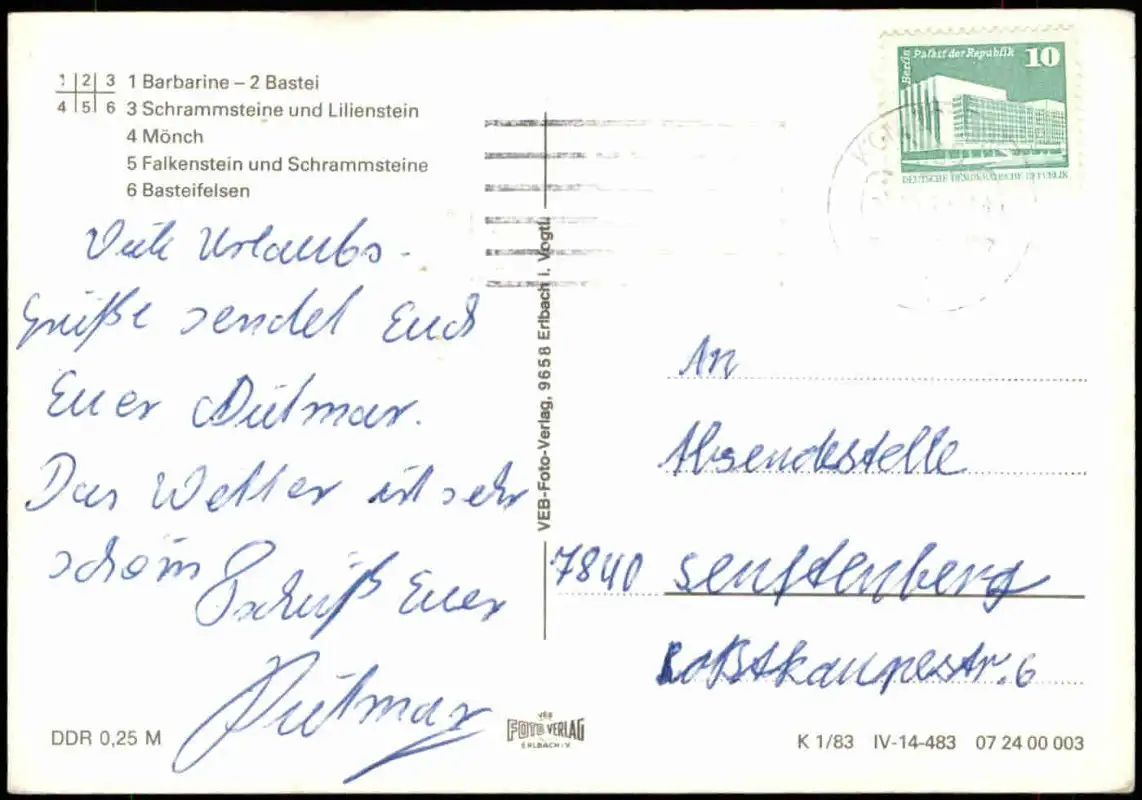 1 2 3
4 5 6
1 Barbarine – 2 Bastei
3 Schrammsteine und Lilienstein
4 Mönch
5 Falkenstein und Schrammsteine
6 Basteifelsen
Viele Urlaubs-
grüße sendet Euch
Euer Dietmar.
Das Wetter ist sehr
schön Tschüß Euer
Dietmar
DDR 0,25 M
VEB-Foto-Verlag, 9658 Erlbach i. Vogtl.
VEB
FOTO VERLAG
ERLBACH i.V.
Berlin Palast der Republik 10
DEUTSCHE DEMOKRATISCHE REPUBLIK
An
Absendestelle
7840 Senftenberg
Roßtkaupestr. 6
K 1/83 IV-14-483 07 24 00 003